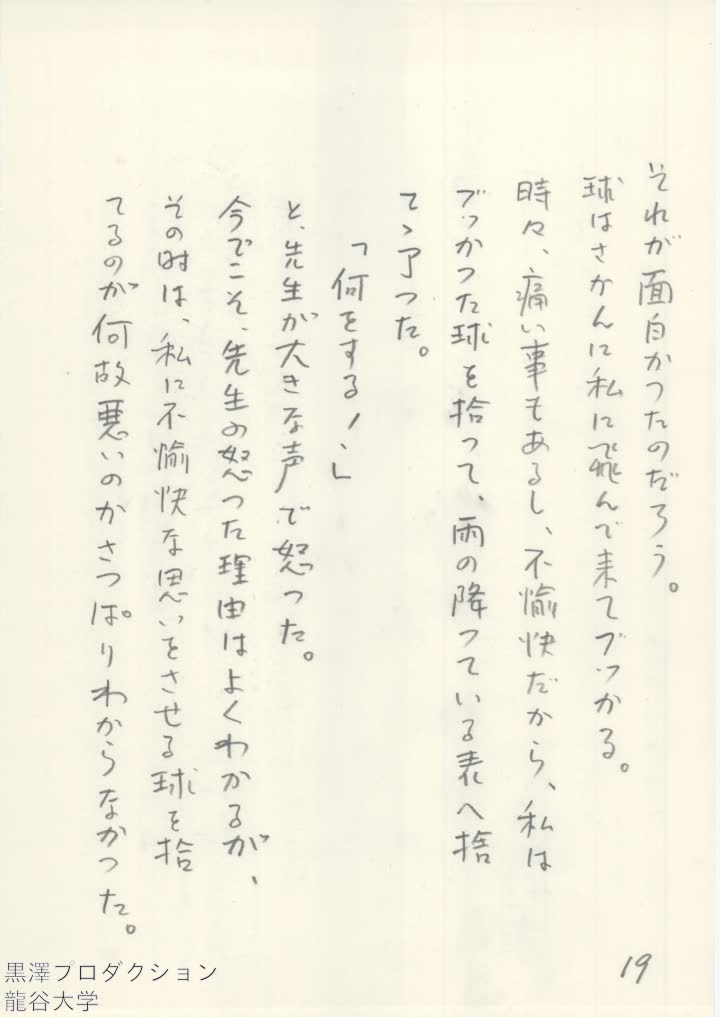 それが面白かつたのだろう。
球はさかんに私に飛んで来てブツかる。
時々、痛い事もあるし、不愉快だから、私は
ブツかつた球を拾つて、雨の降つている表へ捨
てゝ了つた。
「何をする！」
と、先生が大きな声で怒つた。
今でこそ、先生の怒つた理由はよくわかるが、
その時は、私に不愉快な思いをさせる球を捨
てるのが何故悪いのかさつぱりわからなかつた。
19
黒澤プロダクション
龍谷大学